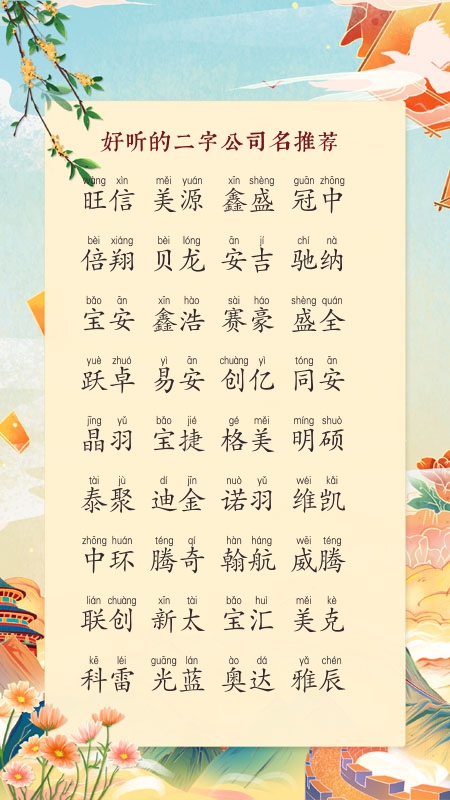 好听的二字公司名推荐
wàng xìn měi yuán xīn shèng guān zhōng
旺信 美源 鑫盛 冠中
bèi xiáng bèi lóng ān jí chí nà
倍翔 贝龙 安吉 驰纳
bǎo ān xīn hào sài háo shèng quán
宝安 鑫浩 赛豪 盛全
yuè zhuó yì ān chuàng yì tóng ān
跃卓 易安 创亿 同安
jīng yǔ bǎo jié gé měi míng shuò
晶羽 宝捷 格美 明硕
tài jù dí jīn nuò yǔ wéi kǎi
泰聚 迪金 诺羽 维凯
zhōng huán téng qí hàn háng wēi téng
中环 腾奇 翰航 威腾
lián chuàng xīn tài bǎo huì měi kè
联创 新太 宝汇 美克
kē léi guāng lán ào dá yǎ chén
科雷 光蓝 奥达 雅辰